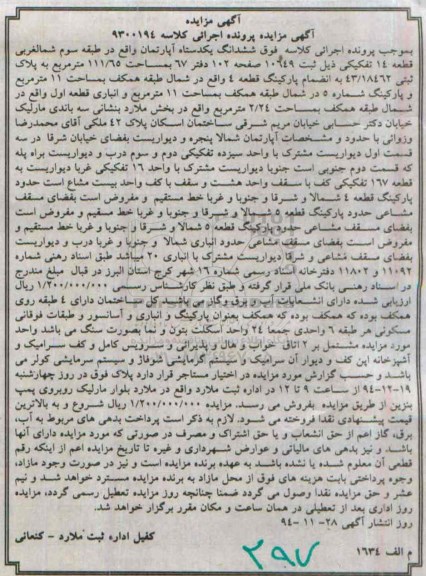 آگهی مزایده
آگهی مزایده پرونده اجرائی کلاسه ۹۳۰۰۱۹۴
بموجب پرونده اجرائی کلاسه فوق ششدانگ یکدستگاه آپارتمان واقع در طبقه سوم شمالغربی
قطعه ۱۴ تفکیکی ذیل ثبت ۱۰۹۴۹ صفحه ۱۰۲ دفتر ۶۷ بمساحت ۱۱۱/۶۵ مترمربع به پلاک
ثبتی ۴۳/۱۸۴۶۲ به انضمام پارکینگ قطعه ۴ واقع در شمال طبقه همکف بمساحت ۱۱ مترمربع
و پارکینگ شماره ۵ در شمال طبقه همکف بمساحت ۱۱ مترمربع و انباری قطعه اول واقع در
شمال طبقه همکف بمساحت ۲/۲۴ مترمربع واقع در بخش ملارد بنشانی سه باندی مارلیک
خیابان دکتر حسابی خیابان مریم شرقی ساختمان اسکان پلاک ۴۲ ملکی آقای محمدرضا
وزوائی با حدود و مشخصات آپارتمان شمالا پنجره و دیواریست بفضای خیابان شرقا در سه
قسمت اول دیواریست مشترک با واحد سیزده تفکیکی دوم و سوم درب و دیواریست براه پله
که قسمت دوم جنوبی است جنوبا دیواریست مشترک با واحد ۱۶ تفکیکی غربا دیواریست به
قطعه ۱۶۷ تفکیکی کف با سقف واحد هشت و سقف با کف واحد بیست مشاع است حدود
پارکینگ قطعه ۴ شمالا و شرقا و جنوبا و غربا خط مستقیم و مفروض است بفضای مسقف
مشاعی حدود پارکینگ قطعه ۵ شمالا و شرقا و جنوبا و غربا خط مستقیم و مفروض است
بفضای مسقف مشاعی حدود پارکینگ قطعه ۵ شمالا و شرقا و جنوبا و غربا خط مستقیم و
مفروض است بفضای مسقف مشاعی حدود انباری شمالا و جنوبا و غربا درب و دیواریست
بفضای مسقف مشاعی و شرقا دیواریست مشترک با انباری ۲۰ میباشد طبق اسناد رهنی شماره
۱۱۰۹۲ و ۱۱۸۰۲ دفترخانه اسناد رسمی شماره ۱۶ شهر کرج استان البرز در قبال مبلغ مندرج
در اسناد رهنی بانک ملی قرار گرفته و طبق نظر کارشناس رسمی ۱/۲۰۰/۰۰۰/۰۰۰ ریال
ارزیابی شده دارای انشعابات آب و برق و گاز می باشد کل ساختمان دارای ۴ طبقه روی
همکف بوده که همکف بوده که همکف بعنوان پارکینگ و انباری و آسانسور و طبقات فوقانی
مسکونی هر طبقه ۶ واحدی جمعا ۲۴ واحد اسکلت بتون و نما بصورت سنگ می باشد واحد
مورد مزایده مشتمل بر ۲ اتاق خواب و هال و پذیرائی و سرویس کامل و کف سرامیک و
آشپزخانه اپن کف و دیوار آن سرامیک و سیستم گرمایشی شوفاژ و سیستم سرمایشی کولر می
باشد و حسب گزارش مورد مزایده در اختیار مستاجر قرار دارد پلاک فوق در روز چهارشنبه
۱۹-۱۲-۹۴ از ساعت ۹ تا ۱۲ در اداره ثبت ملارد واقع در ملارد بلوار مارلیک روبروی پمپ
بنزین از طریق مزایده بفروش می رسد. مزایده ۱/۲۰۰/۰۰۰/۰۰۰ ریال شروع و به بالاترین
قیمت پیشنهادی نقدا فروخته می شود. لازم به ذکر است پرداخت بدهی های مربوط به آب،
برق، گاز اعم از حق انشعاب و یا حق اشتراک و مصرف در صورتی که مورد مزایده دارای آنها
باشد و نیز بدهی های مالیاتی و عوارض شهرداری و غیره تا تاریخ مزایده اعم از اینکه رقم
قطعی آن معلوم شده یا نشده باشد به عهده برنده مزایده است و نیز در صورت وجود مازاد،
وجوه پرداختی بابت هزینه های فوق از محل مازاد به برنده مزایده مسترد خواهد شد و نیم
عشر و حق مزایده نقدا وصول می گردد ضمنا چنانچه روز مزایده تعطیل رسمی گردد، مزایده
روز اداری بعد از تعطیلی در همان ساعت و مکان مقرر برگزار خواهد شد.
روز انتشار آگهی ۲۸-۱۱-۹۴
کفیل اداره ثبت ملارد - کنعانی
م الف ۱۶۳۴
۲۹۷